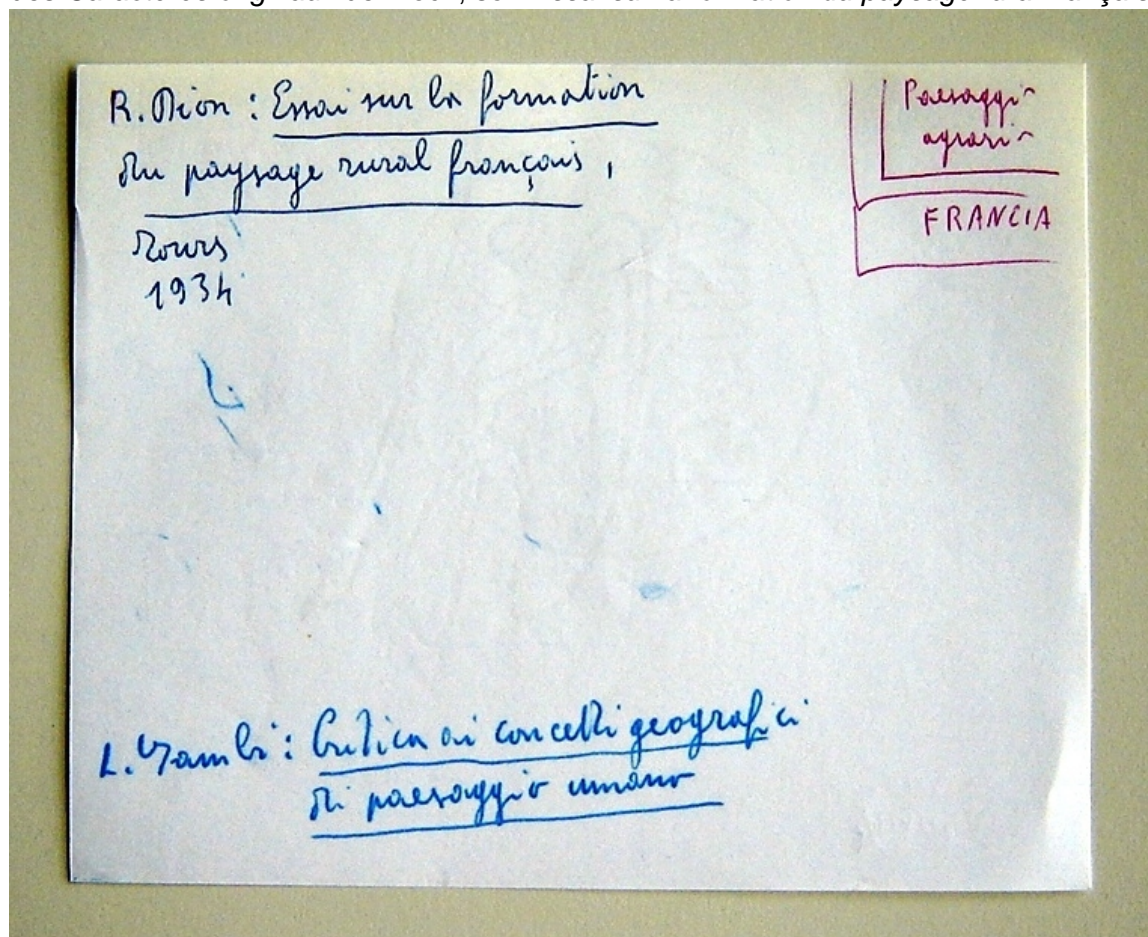 R. Dion : Essai sur la formation
du paysage rural français,
Tours
1934
Paesaggi
agrari
FRANCIA
L. Gambi: Critica ai concetti geografici
di paesaggio umano